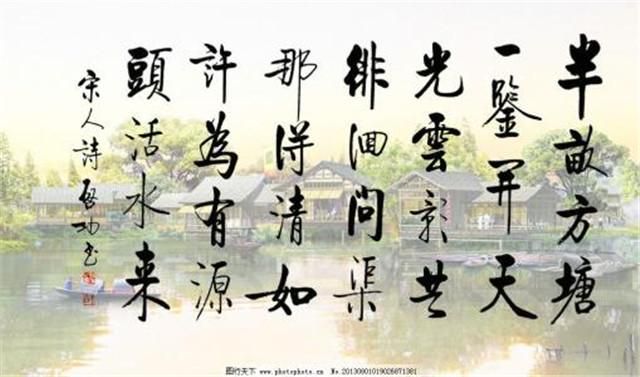 半畝方塘
一鑒开天
光雲影共
徘洄問渠
那得清如
許為有源
頭活水来
宋人詩 啓功书
图行天下 www.photophoto.cn No.20130801019026871381